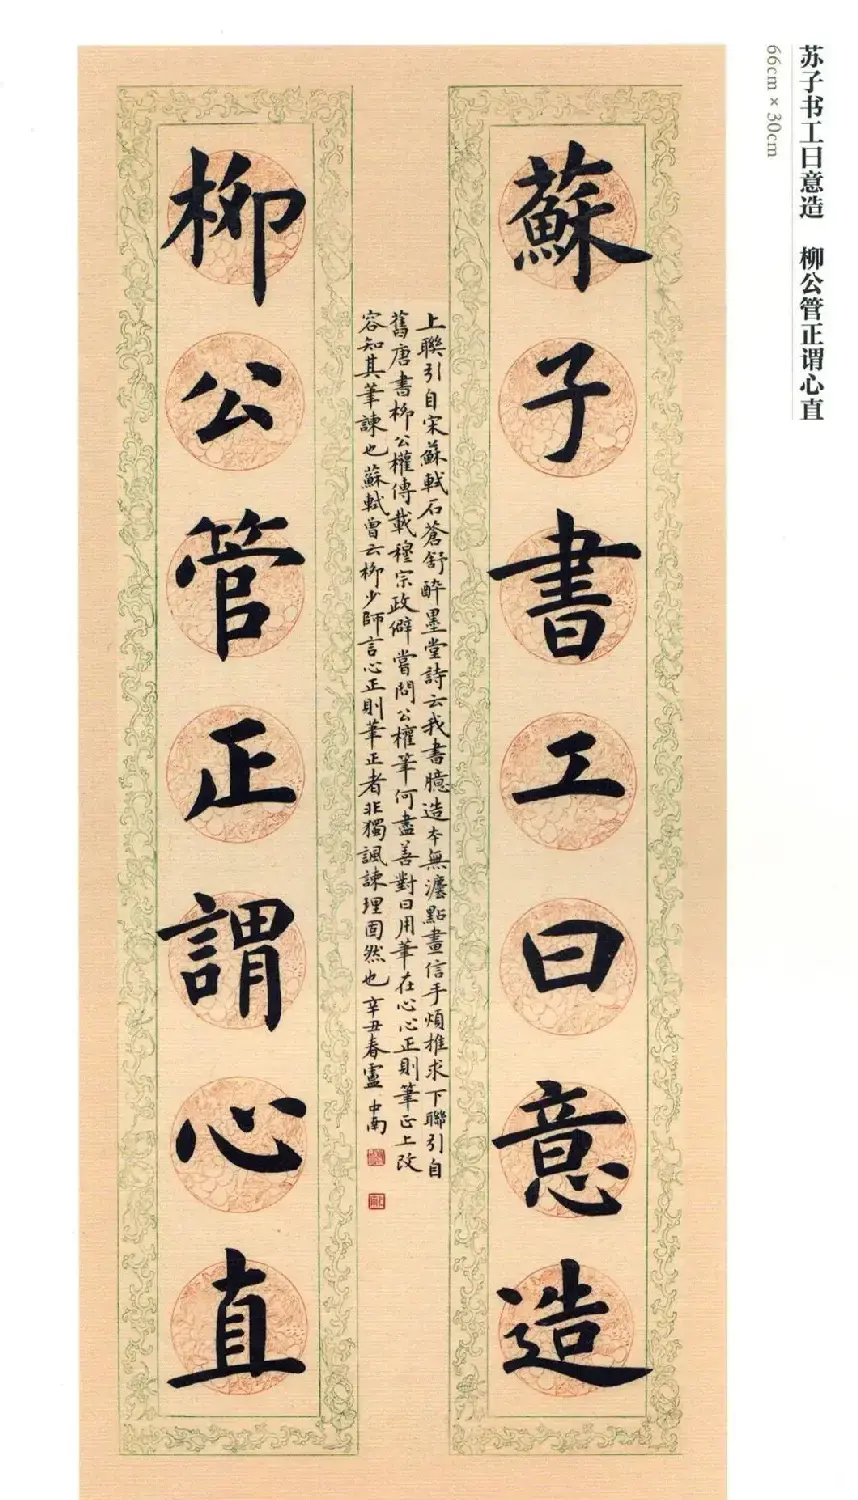 苏子书工日意造 柳公管正谓心直
66cm×30cm
蘇子書工曰意造
上聯引自宋蘇軾石蒼舒醉墨堂詩云我書臆造本無灋點畫信手煩推求下聯引自
舊唐書柳公權傳載穆宗政僻嘗問公權筆何盡善對曰用筆在心心正則筆正上改
容知其筆諫也蘇軾曾云柳少師言心正則筆正者非獨諷諫理固然也辛丑春盧中南
柳公管正謂心直